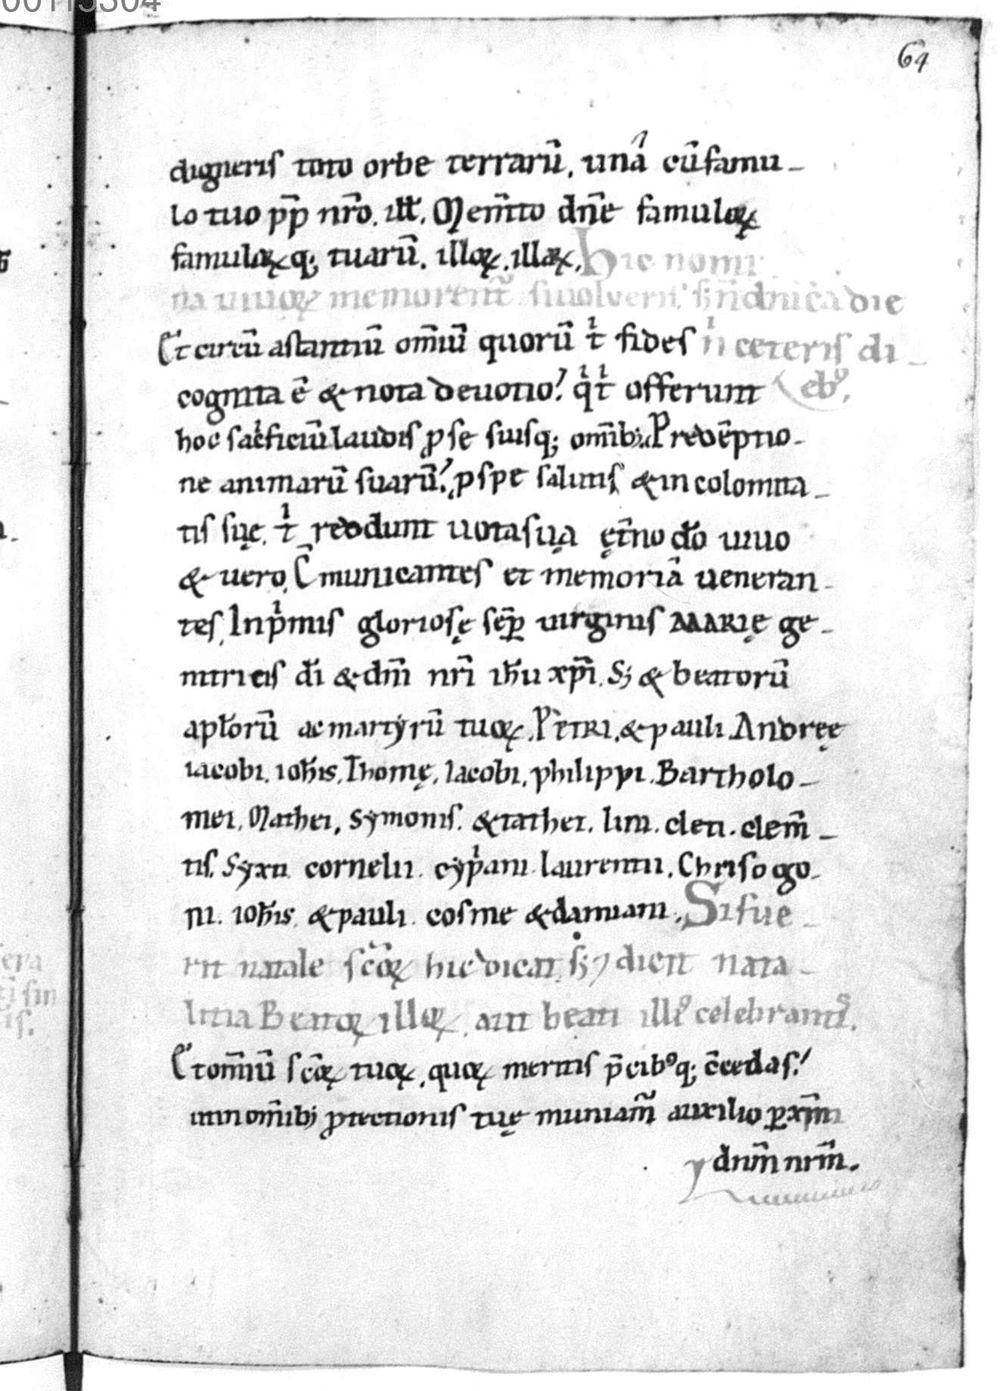 00115304
64
digneris toto orbe terrarū. unā cū famu-
lo tuo pp̄ nr̄o. ill̄. Mem̄to dn̄e famuloꝝ
famulaꝝq; tuarū. illoꝝ. illaꝝ. Hic nomi
na uiuoꝝ memorent᷑. dn̄ica die
Et circū astantiū om̄iū quorū t̍ fides n̍ ceteris di-
cognita ē & nota deuotio. q̍ t̍ offerunt eb᷒.
hoc sac̍ficiū laudis ꝓ se suisq; om̄ib; Pro redēptio-
ne animarū suarū. ꝓ spe salutis & incolomita-
tis suę. t̍ reddunt uota sua ęt̄no dō uiuo
& uero. C̄municantes et memoriā ueneran-
tes. Inp̍mis gloriosę semꝑ uirginis MARIĘ ge-
nitricis dī & dn̄i nr̄i ih̄u xp̄i. Sꝫ & beatorū
apl̄orū ac martyrū tuoꝝ. PETRI. & pauli. Andreę
iacobi. ioh̄is. Thomę. Iacobi. philippi. Bartholo-
mei. Mathei. Symonis. & tathei. lini. cleti. clem̄-
tis. Syxti. cornelii. cyp̍ani. laurentii. Chrisogo-
ni. ioh̄is. & pauli. cosme & damiani. Si fue-
rit natale sc̄oꝝ hic dicat᷑. nata-
litia Beatoꝝ illoꝝ. aut beati ill᷒ celebrant᷑.
Et om̄iū sc̄oꝝ tuoꝝ. quoꝝ meritis p̄cib᷒q; c̄cedas.
ut in om̄ib; ꝓtectionis tuę muniam᷑ auxilio ꝑ xp̄m
dn̄m nr̄m.